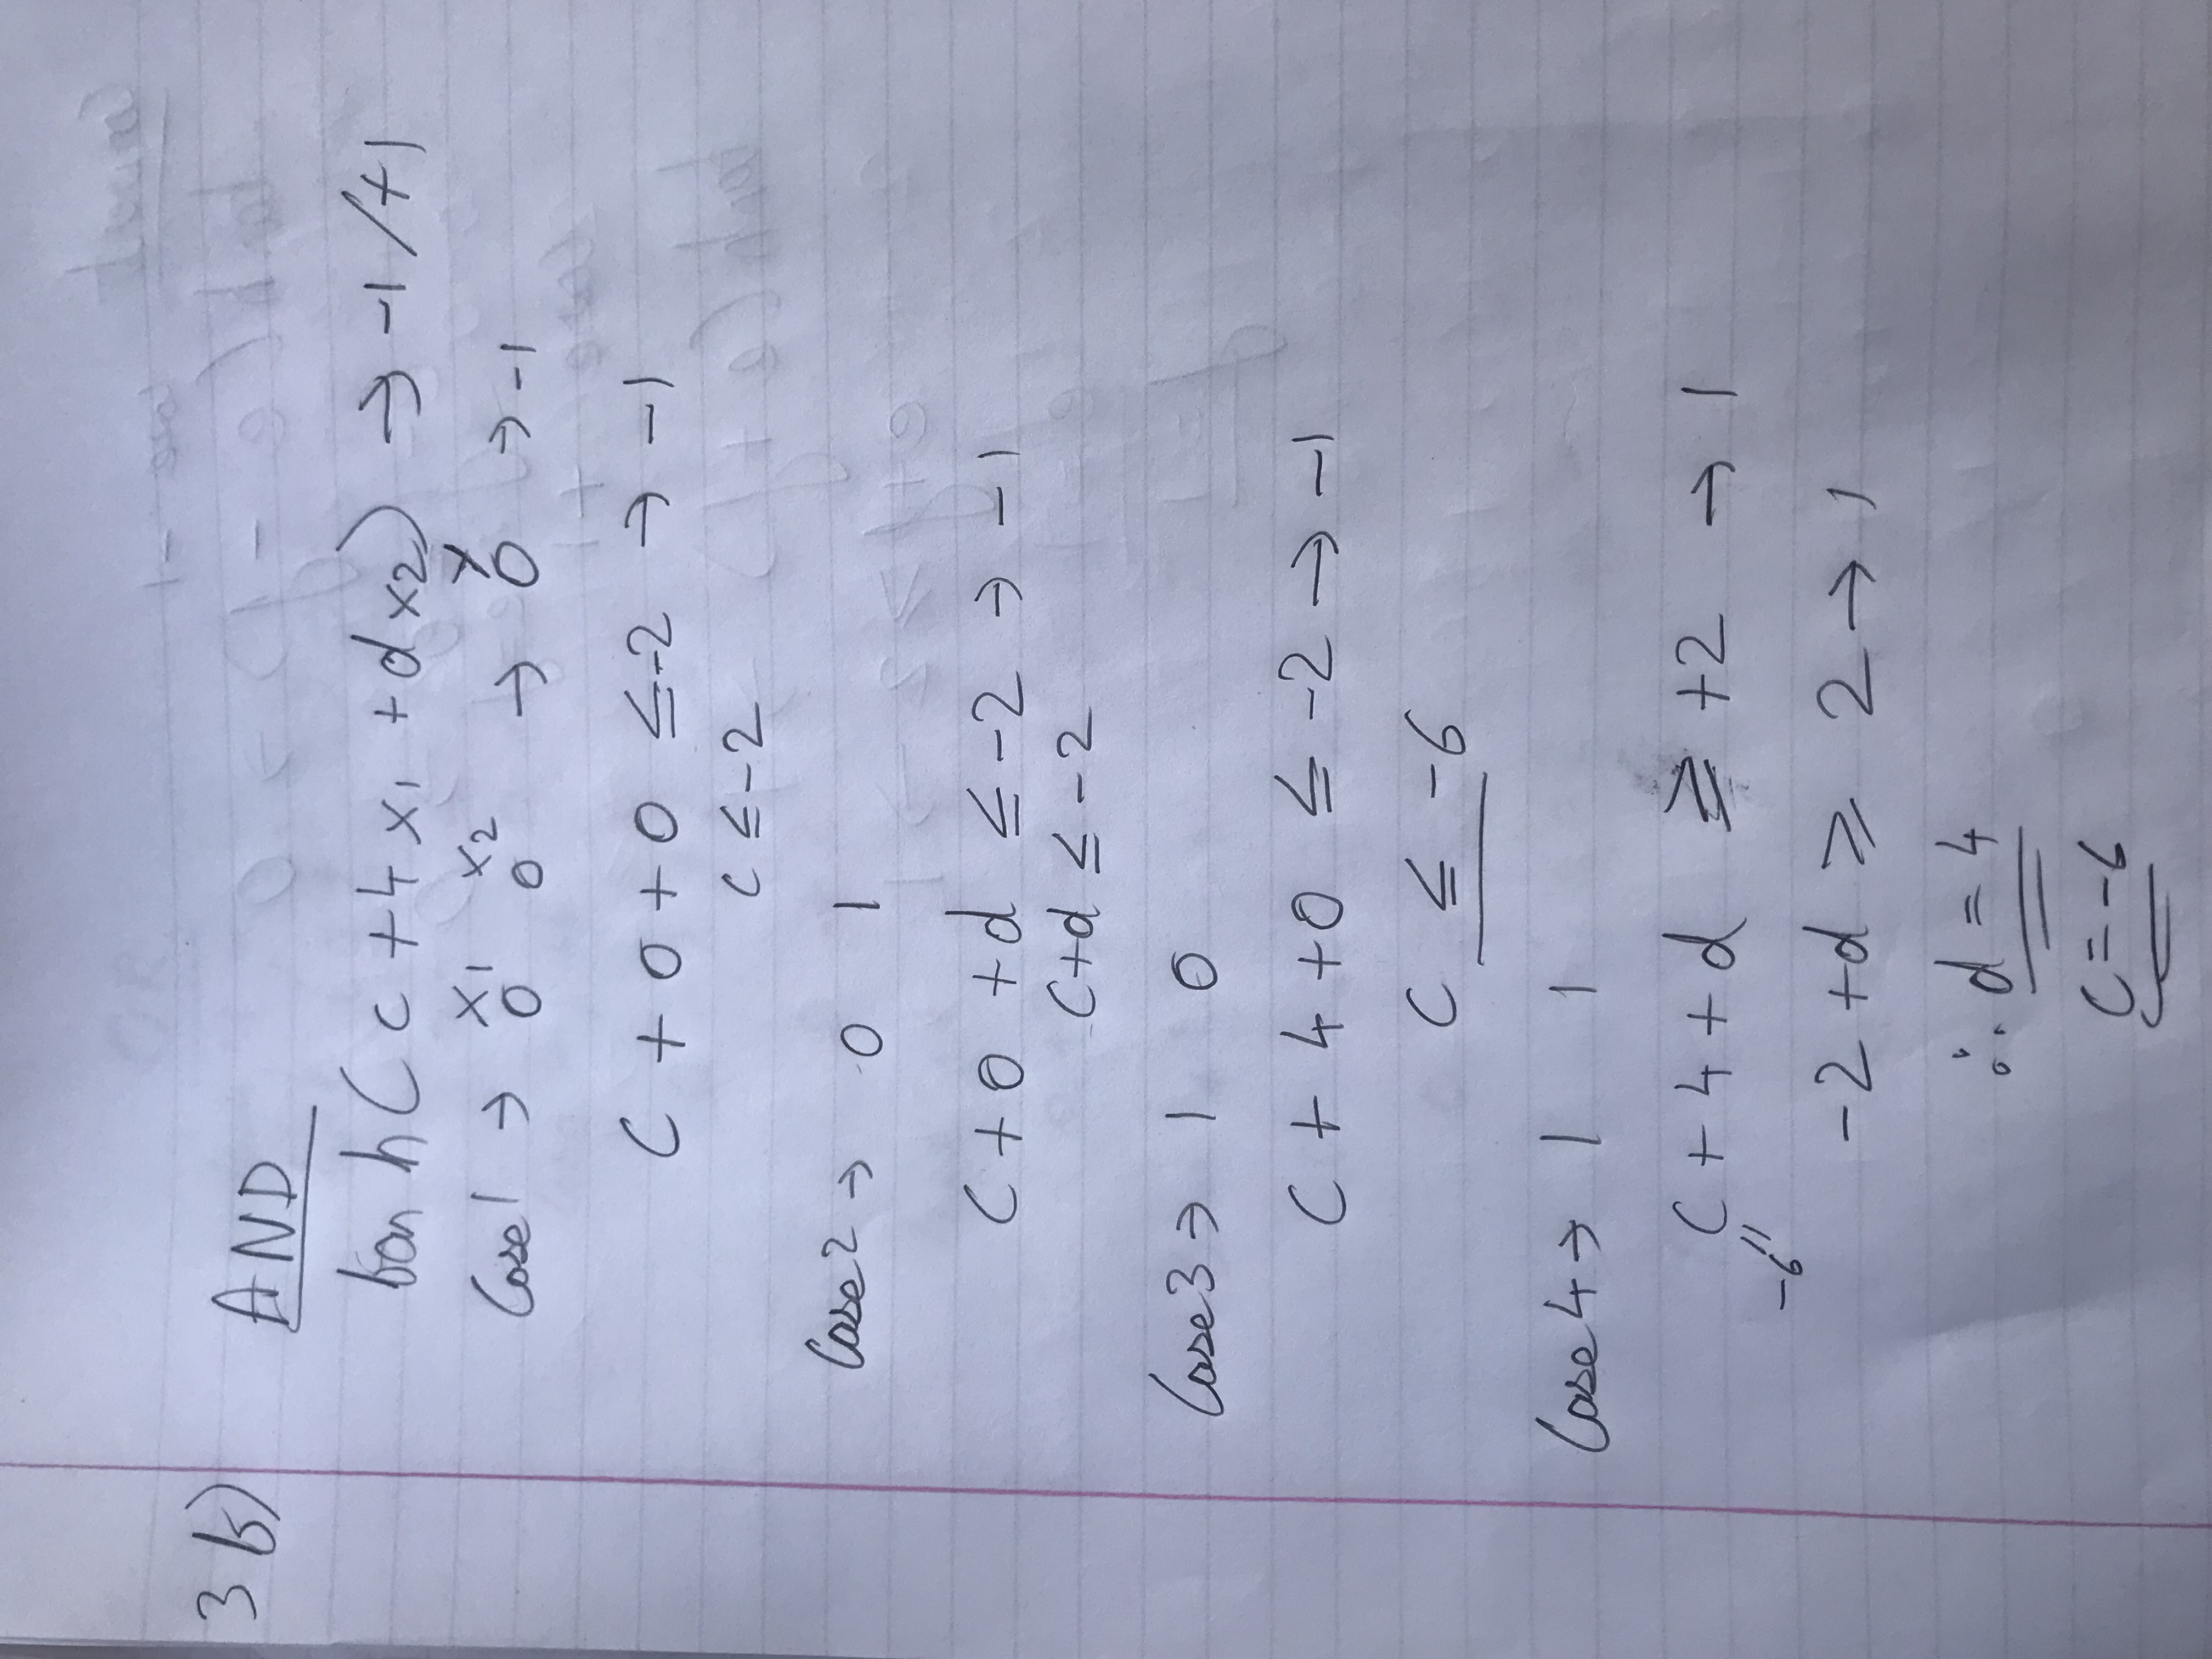 3 b)
AND
tanh(c + 4x₁ + dx₂) → -1/+1
x₁ x₂ y
Case 1 → 0 0 → 0 → -1
C + 0 + 0 ≤ -2 → -1
c ≤ -2
Case 2 → 0 1
C + 0 + d ≤ -2 → -1
C+d ≤ -2
Case 3 → 1 0
C + 4 + 0 ≤ -2 → -1
C ≤ -6
Case 4 → 1 1
C + 4 + d ≥ +2 → 1
-6
-2 + d ≥ 2 → 1
∴ d = 4
C = -6